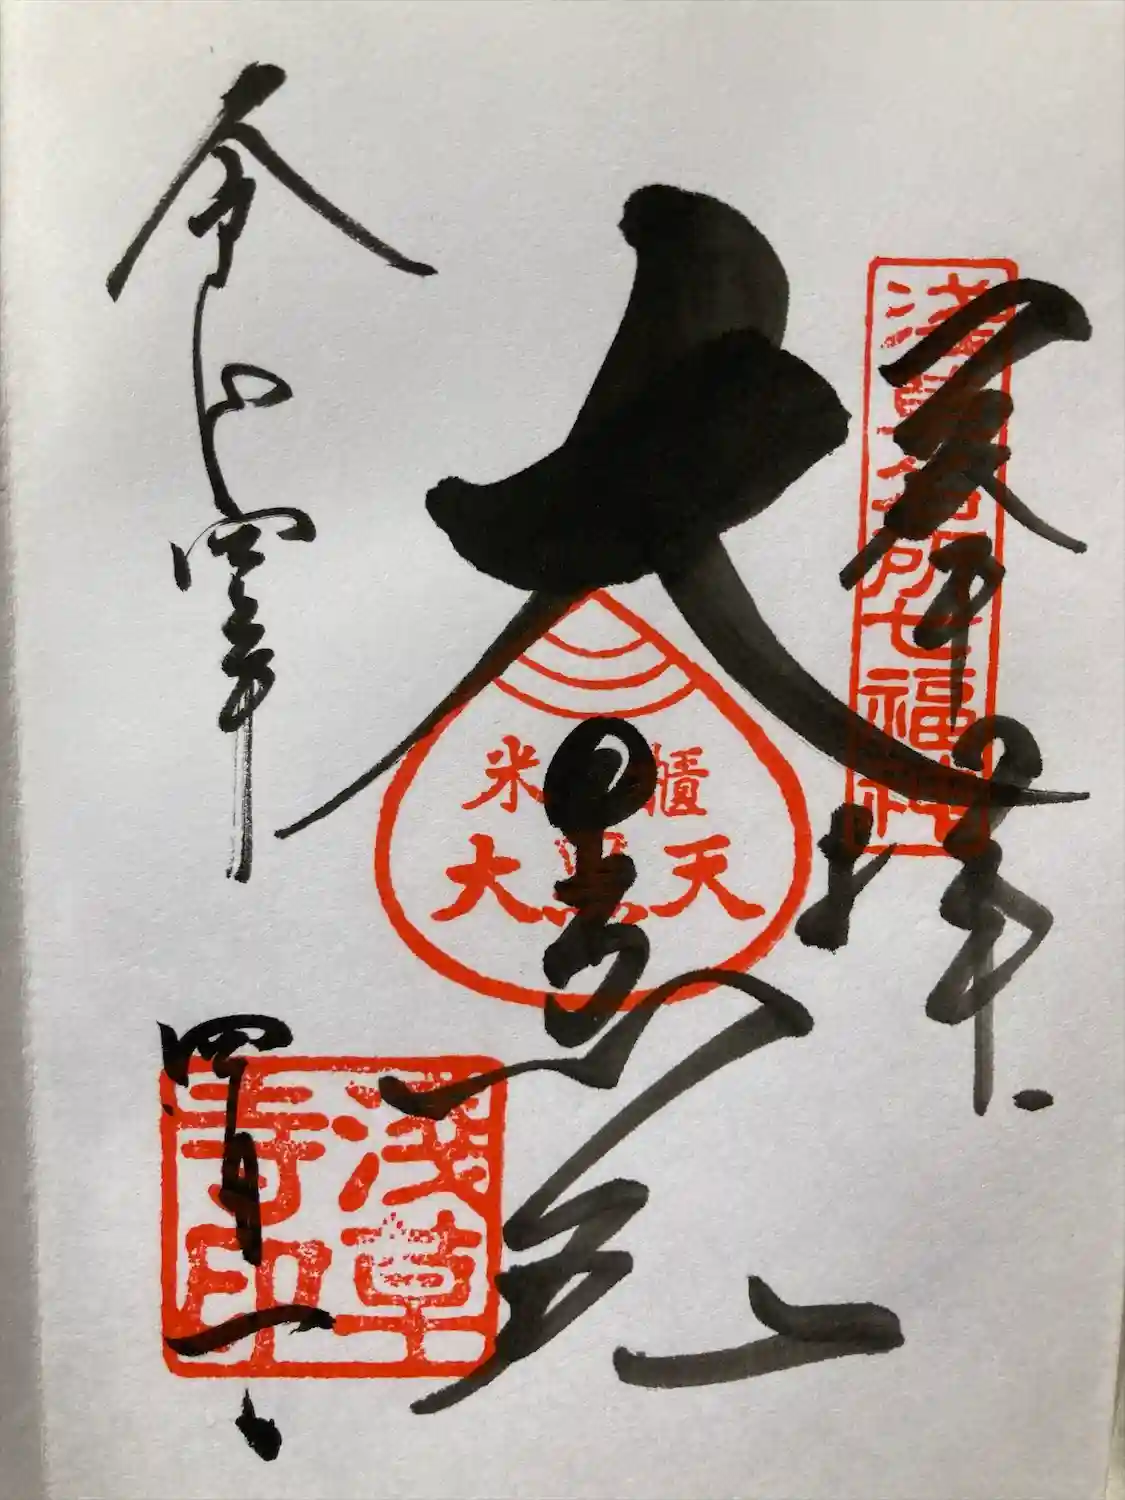 奉拝
浅草名所七福神
大黒天
米櫃
大黒天
令和四年
四月一日
浅草寺印